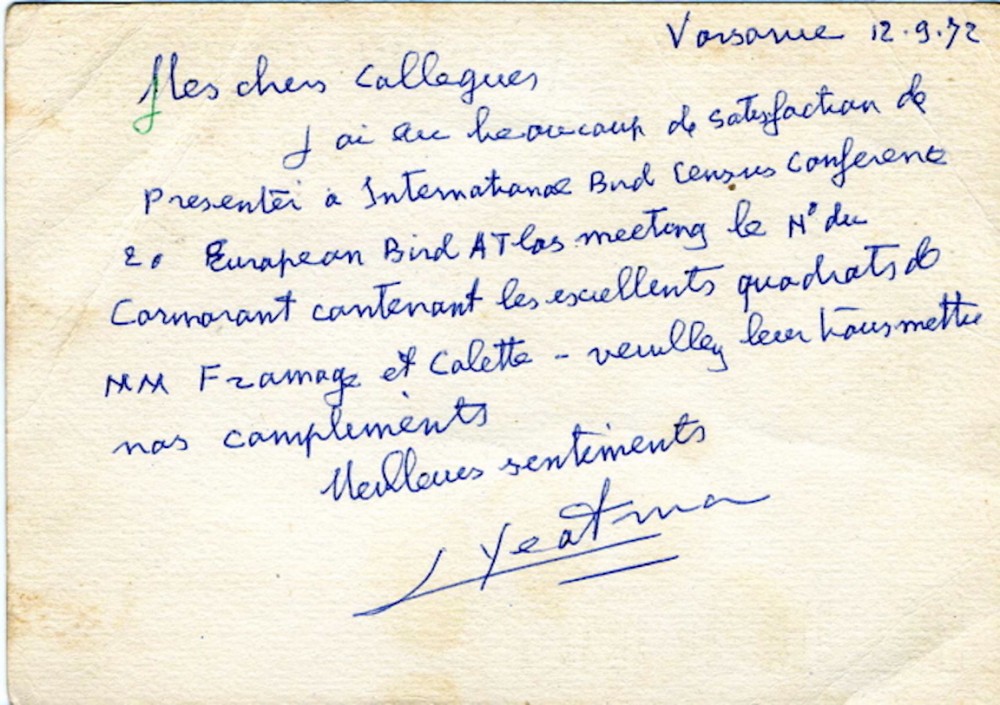 Varsovie 12.9.72
Mes chers Collegues
J ai eu beaucoup de satisfaction de
presenter à International Bird Census Conference
et European Bird ATlas meeting le N° du
Cormorant contenant les excellents quadrats de
MM Fromage et Colette - veuillez leur transmettre
nos compliments
Meilleurs sentiments
L Yeatman